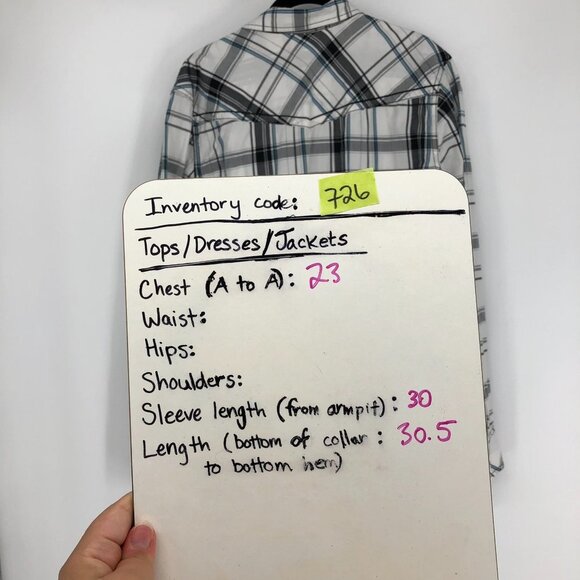 Inventory code: 726
Tops/Dresses/Jackets
Chest (A to A): 23
Waist:
Hips:
Shoulders:
Sleeve length (from armpit): 30
Length (bottom of collar : 30.5
to bottom hem)